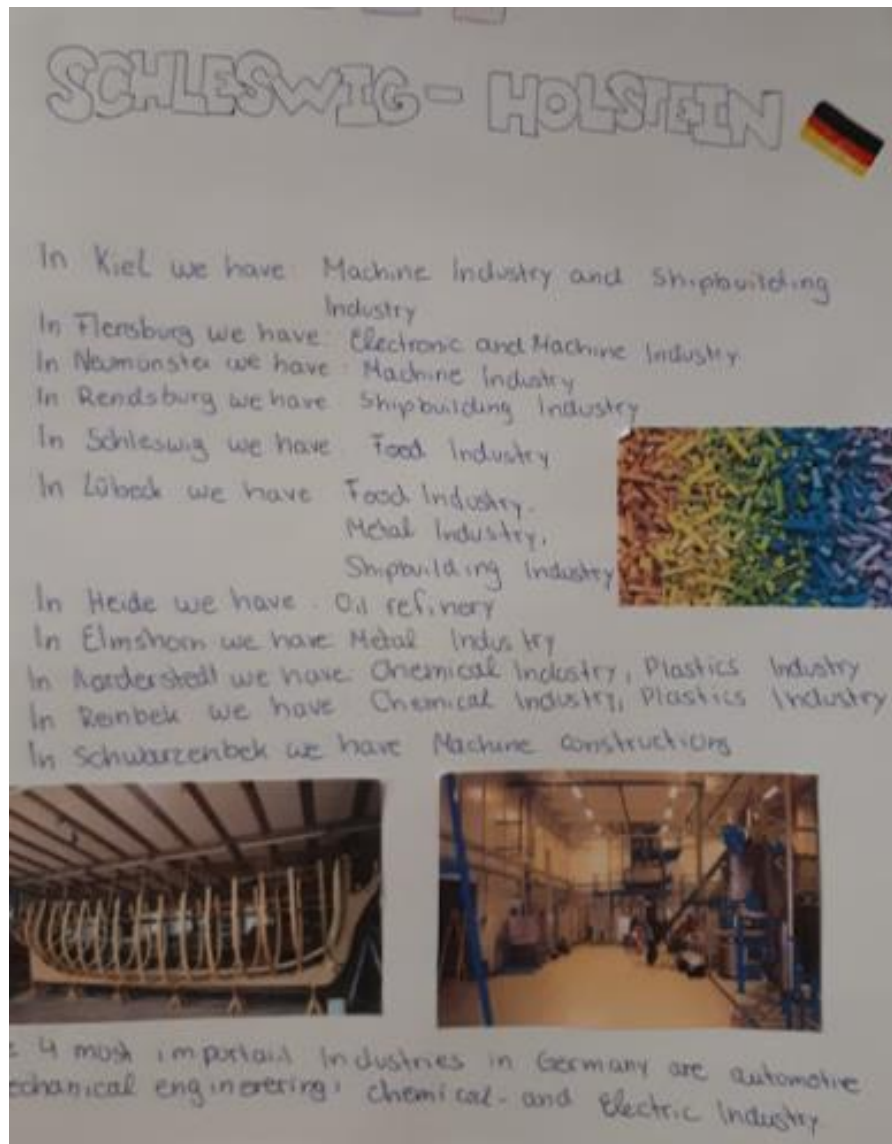 SCHLESWIG - HOLSTEIN
In Kiel we have: Machine Industry and Shipbuilding
Industry
In Flensburg we have: Electronic and Machine Industry
In Neumünster we have: Machine Industry
In Rendsburg we have: Shipbuilding Industry
In Schleswig we have: Food Industry
In Lübeck we have: Food Industry,
Metal Industry,
Shipbuilding Industry
In Heide we have: Oil refinery
In Elmshorn we have: Metal Industry
In Norderstedt we have: Chemical Industry, Plastics Industry
In Reinbek we have: Chemical Industry, Plastics Industry
In Schwarzenbek we have Machine constructions
4 most important Industries in Germany are automotive
echanical enginerering, chemical- and Electric Industry